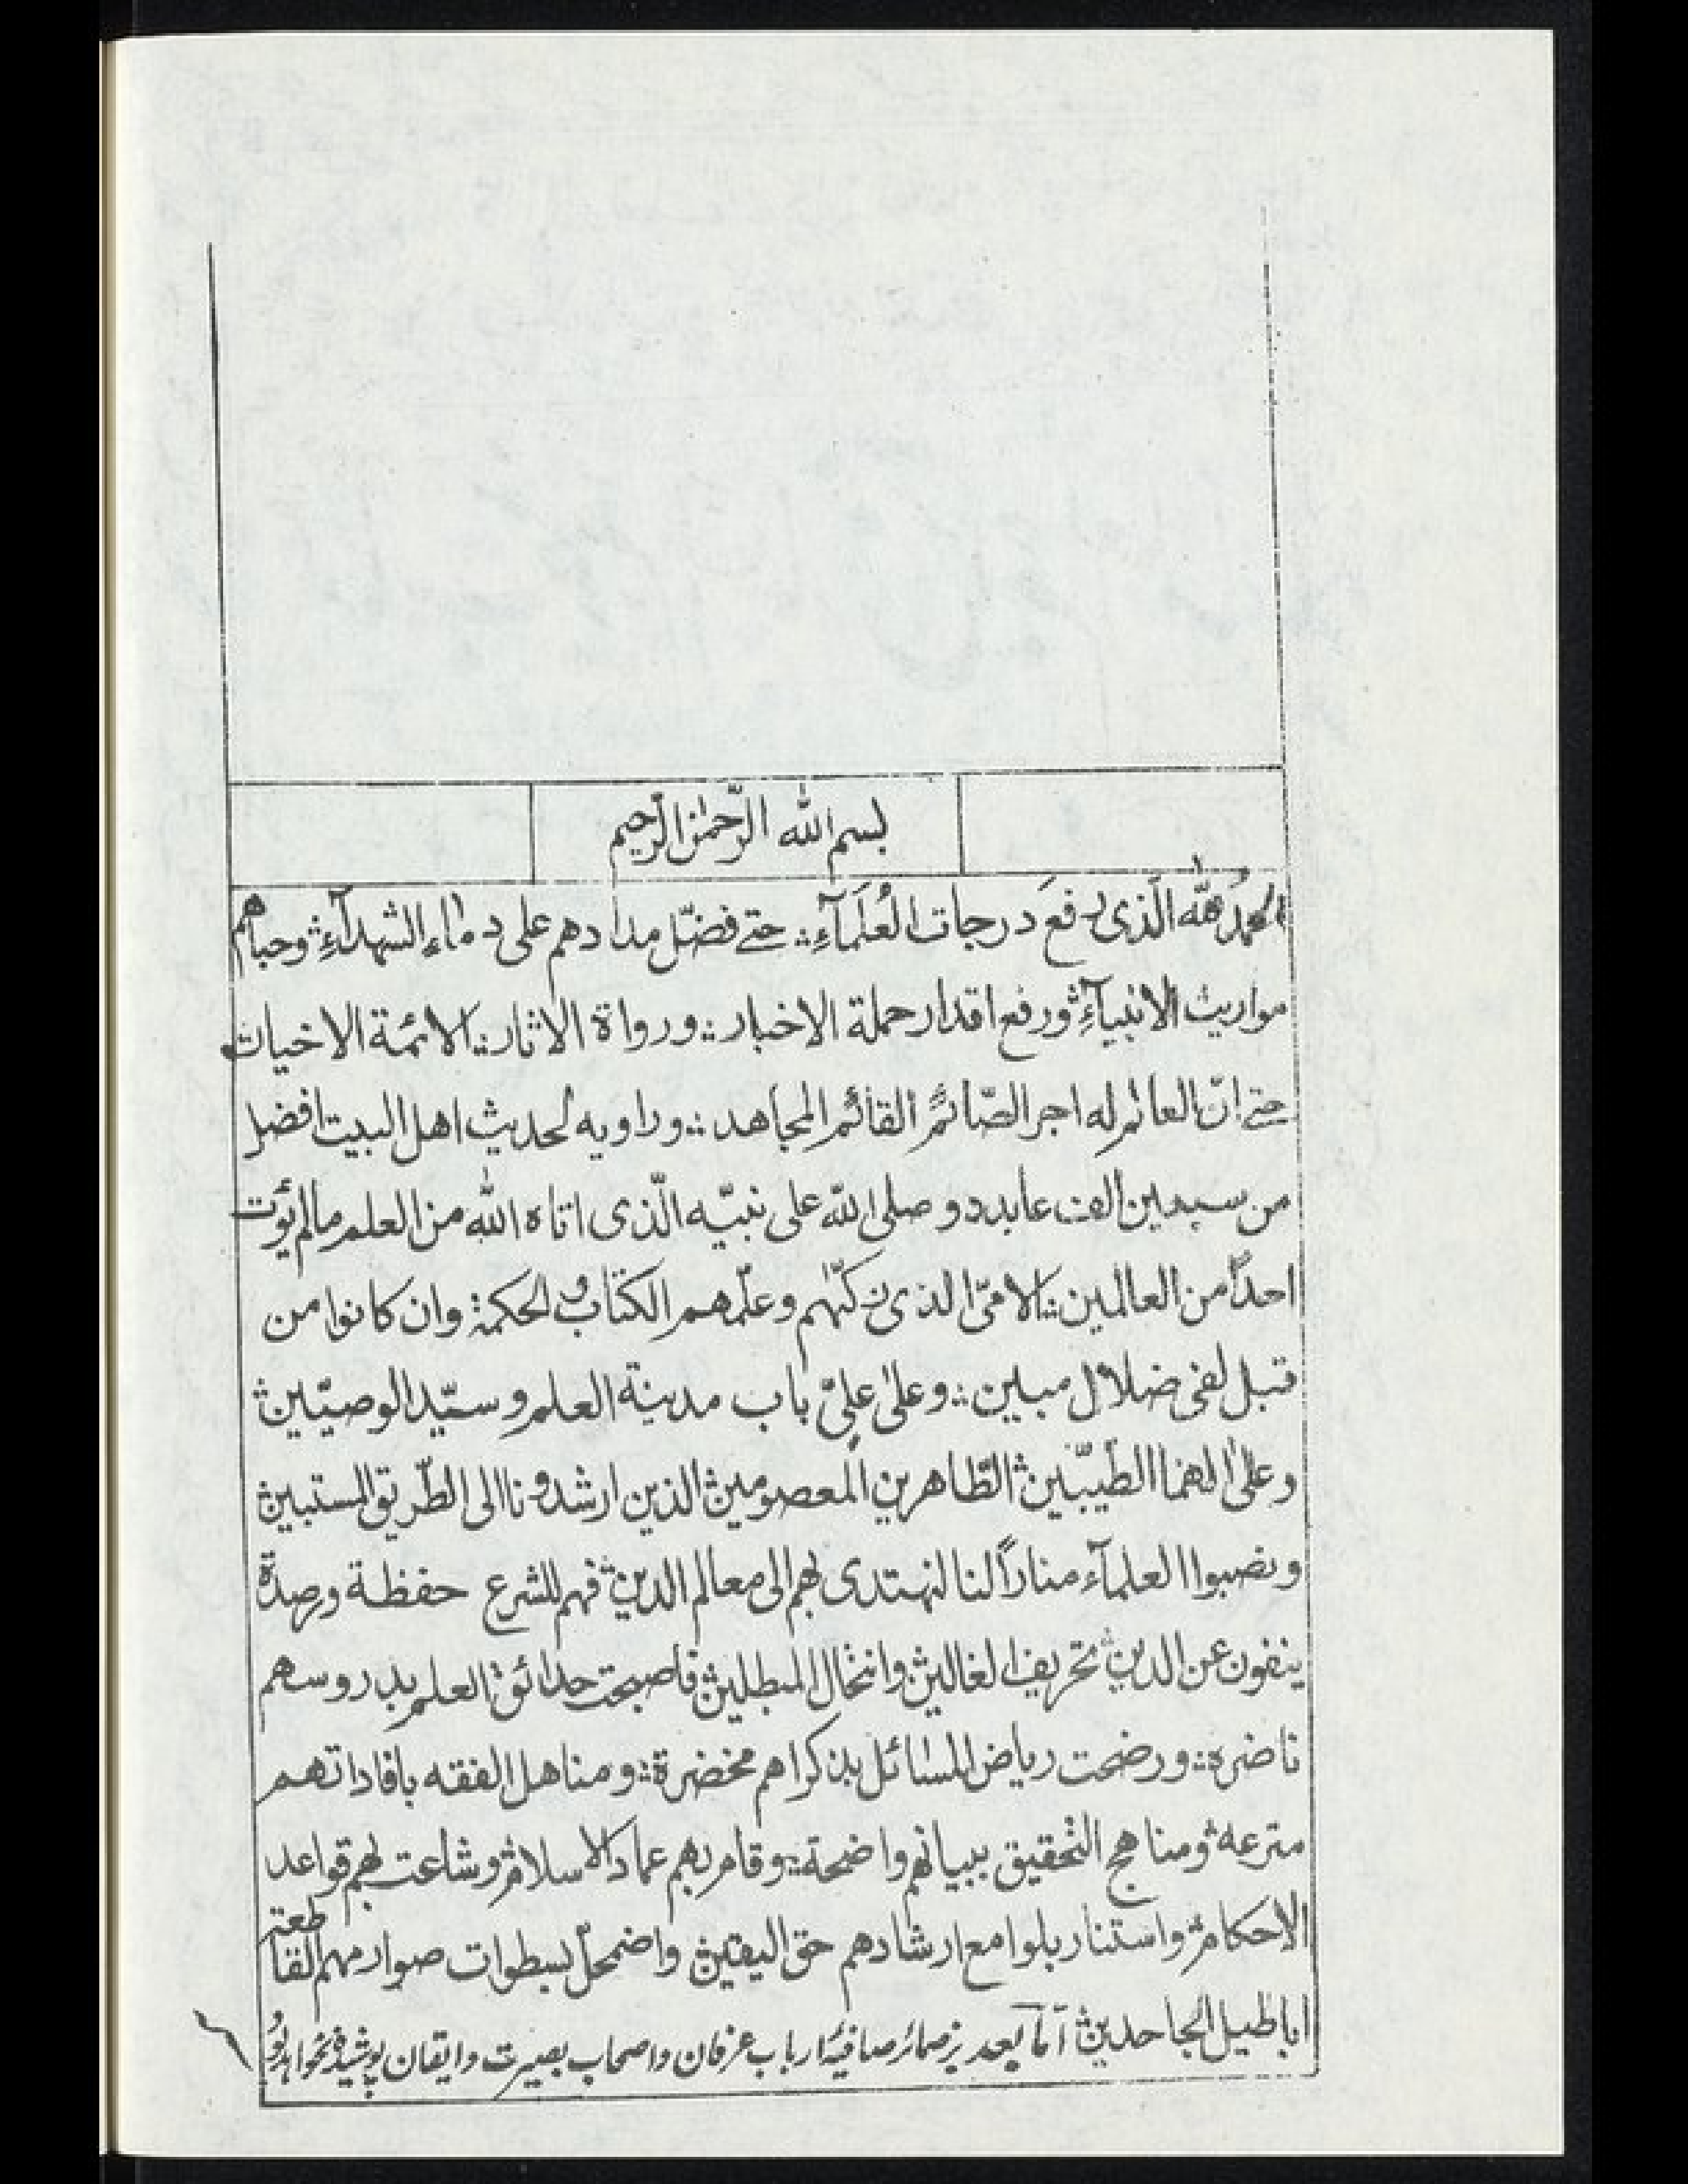 بسم الله الرّحمٰن الرّحيم
الحمدُ للّه الّذى رفعَ درجات العُلَمَآءِ؞ حتے فضّل مدادهم على دماء الشهدآءِ؞ وحباهم
مواريث الانبيآءِ؞ ورفع اقدار حملة الاخبار؞ ورواة الاثار؞ الائمة الاخيار؞
حتے انّ العالم له اجر الصّائم القائم المجاهد؞ وراويه لحديث اهل البيت افضل
من سبعين الف عابد؞ و صلى اللّٰه على نبيّه الّذى اتاه اللّٰه من العلم مالم يؤت
احداً من العالمين؞ الامىّ الذى زكّٰهم وعلّمهم الكتاب والحكمة؞ وان كانوا من
قبل لفى ضلال مبين؞ وعلى علىّ باب مدينة العلم و سيّد الوصيّين؞
وعلىٰ الهما الطيّبين؞ الطّاهرين المعصومين؞ الذين ارشدونا الى الطّريق المستبين؞
ونصبوا العلمآء مناراً لنا لنهتدى بهم الى معالم الدين؞ فهم للشرع حفظة ورصدة
ينفون عن الدين؞ تحريف الغالين؞ وانتحال المبطلين؞ فاصبحت حدائق العلم بدروسهم
ناضرة؞ ورضحت رياض المسائل بذكراهم مخضرة؞ ومناهل الفقه بافاداتهم
مترعه؞ ومناهج التحقيق ببيانهم واضحة؞ وقام بهم عماد الاسلام؞ وشاعت بهم قواعد
الاحكام؞ واستنار بلوامع ارشادهم حق اليقين؞ واضمحلّ بسطوات صوارمهم القاطعة
اباطيل الجاحدين؞ امّا بعد بر ضمائر صافيۂ ارباب عرفان واصحاب بصيرت وايقان پوشيده نخواهد بود